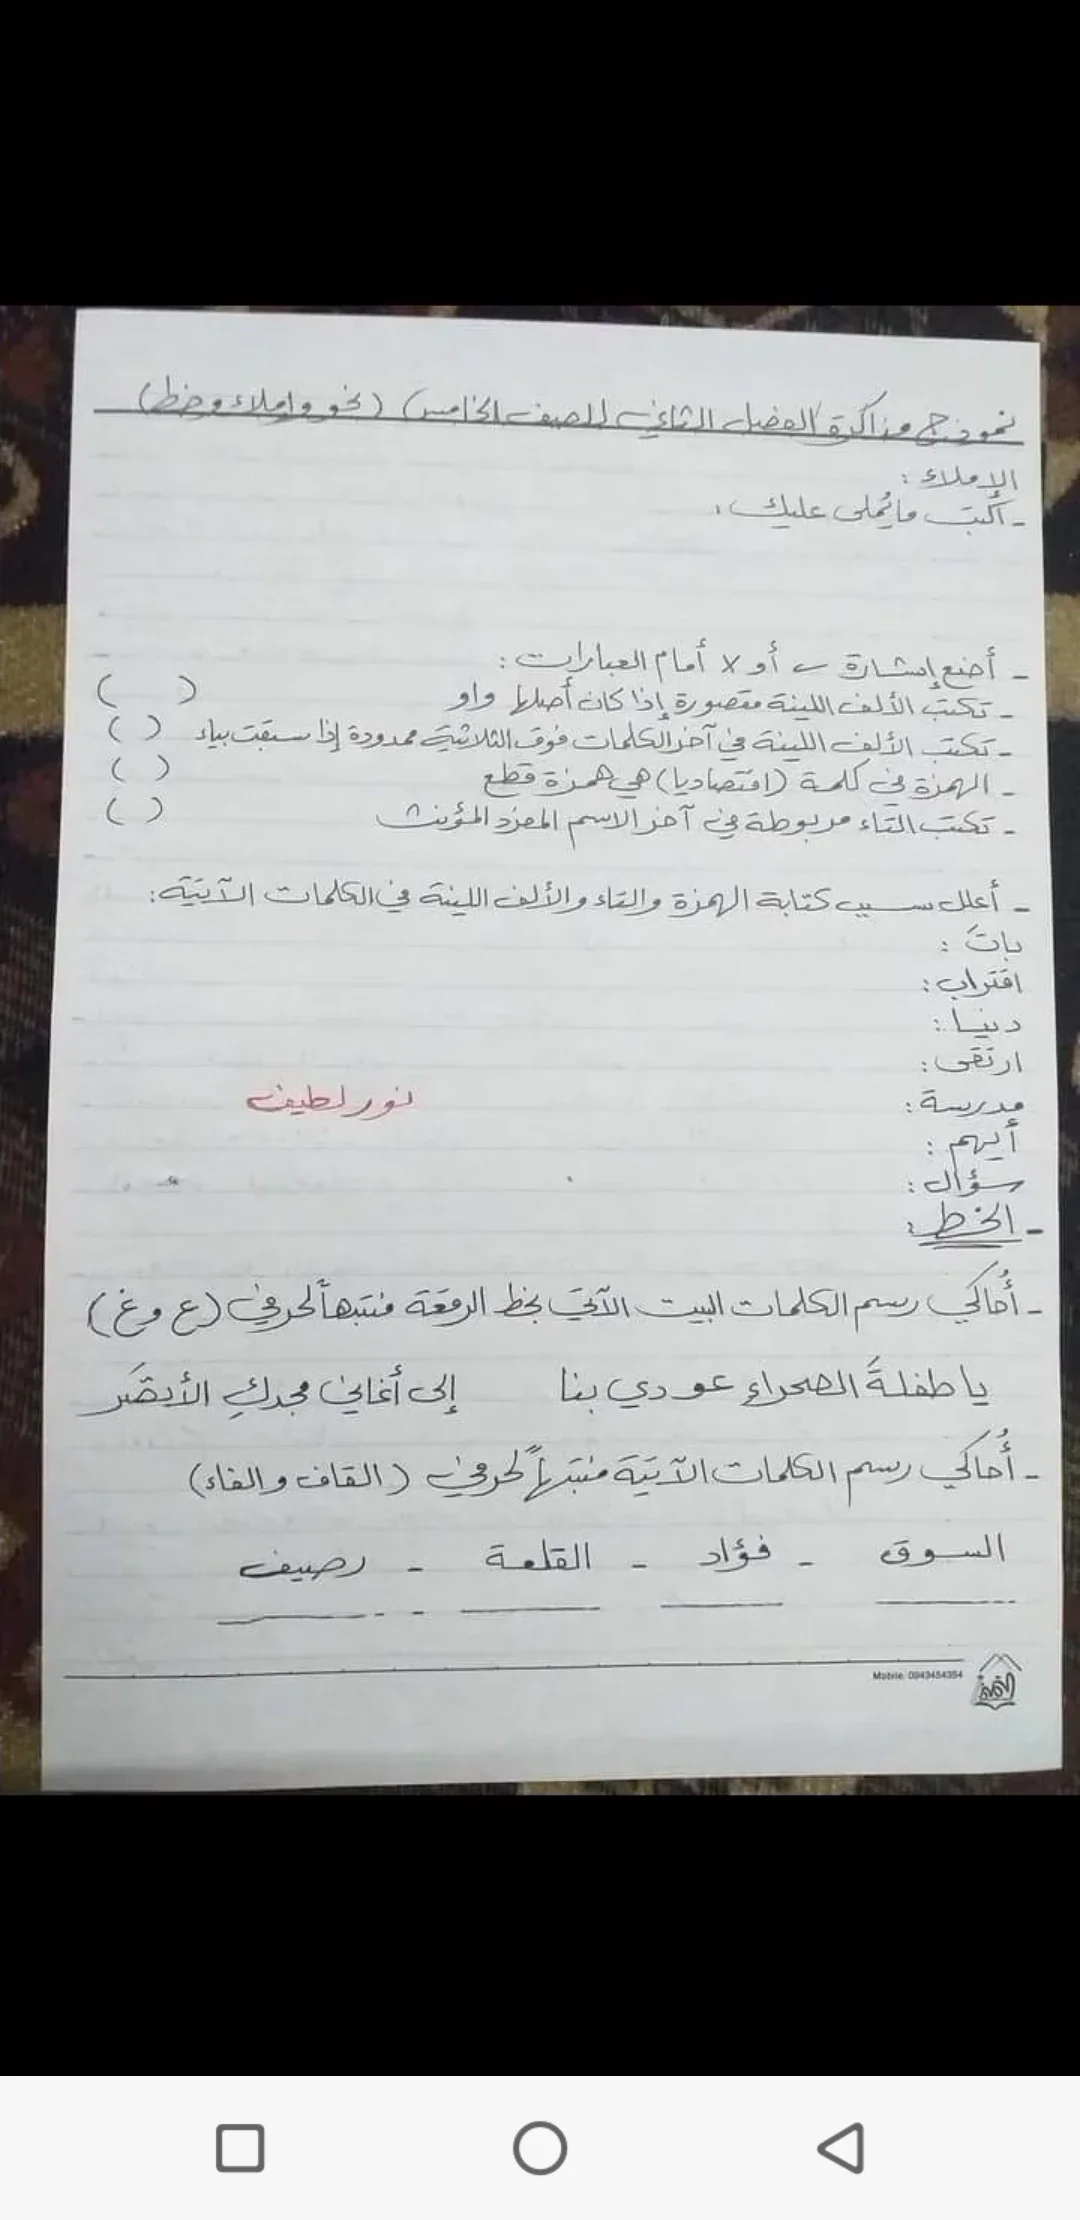 نموذج مذاكرة الفصل الثاني للصف الخامس (نحو وإملاء وخط)
الإملاء :
- أكتب ما يُملى عليك :
- أضع إشارة ✓ أو x أمام العبارات :
- تكتب الألف اللينة مقصورة إذا كان أصلها واو ( )
- تكتب الألف اللينة في آخر الكلمات فوق الثلاثية ممدودة إذا سبقت بياء ( )
- الهمزة في كلمة (اقتصاديا) هي همزة قطع ( )
- تكتب التاء مربوطة في آخر الاسم المفرد المؤنث ( )
- أعلل سبب كتابة الهمزة والتاء والألف اللينة في الكلمات الآتية :
باتَ :
اقتراب :
دنيا :
ارتقى :
مدرسة :
نور لطيف
أيهم :
سؤال :
- الخط :
- أُحاكي رسم الكلمات البيت الآتي بخط الرقعة منتبهاً لحرفي (ع وغ)
يا طفلةَ الصحراءِ عودي بنا إلى أغاني مجدكِ الأنضَر
- أُحاكي رسم الكلمات الآتية منتبهاً لحرفي (القاف والفاء)
السوق - فؤاد - القلعة - رصيف
Mobile: 0943454354